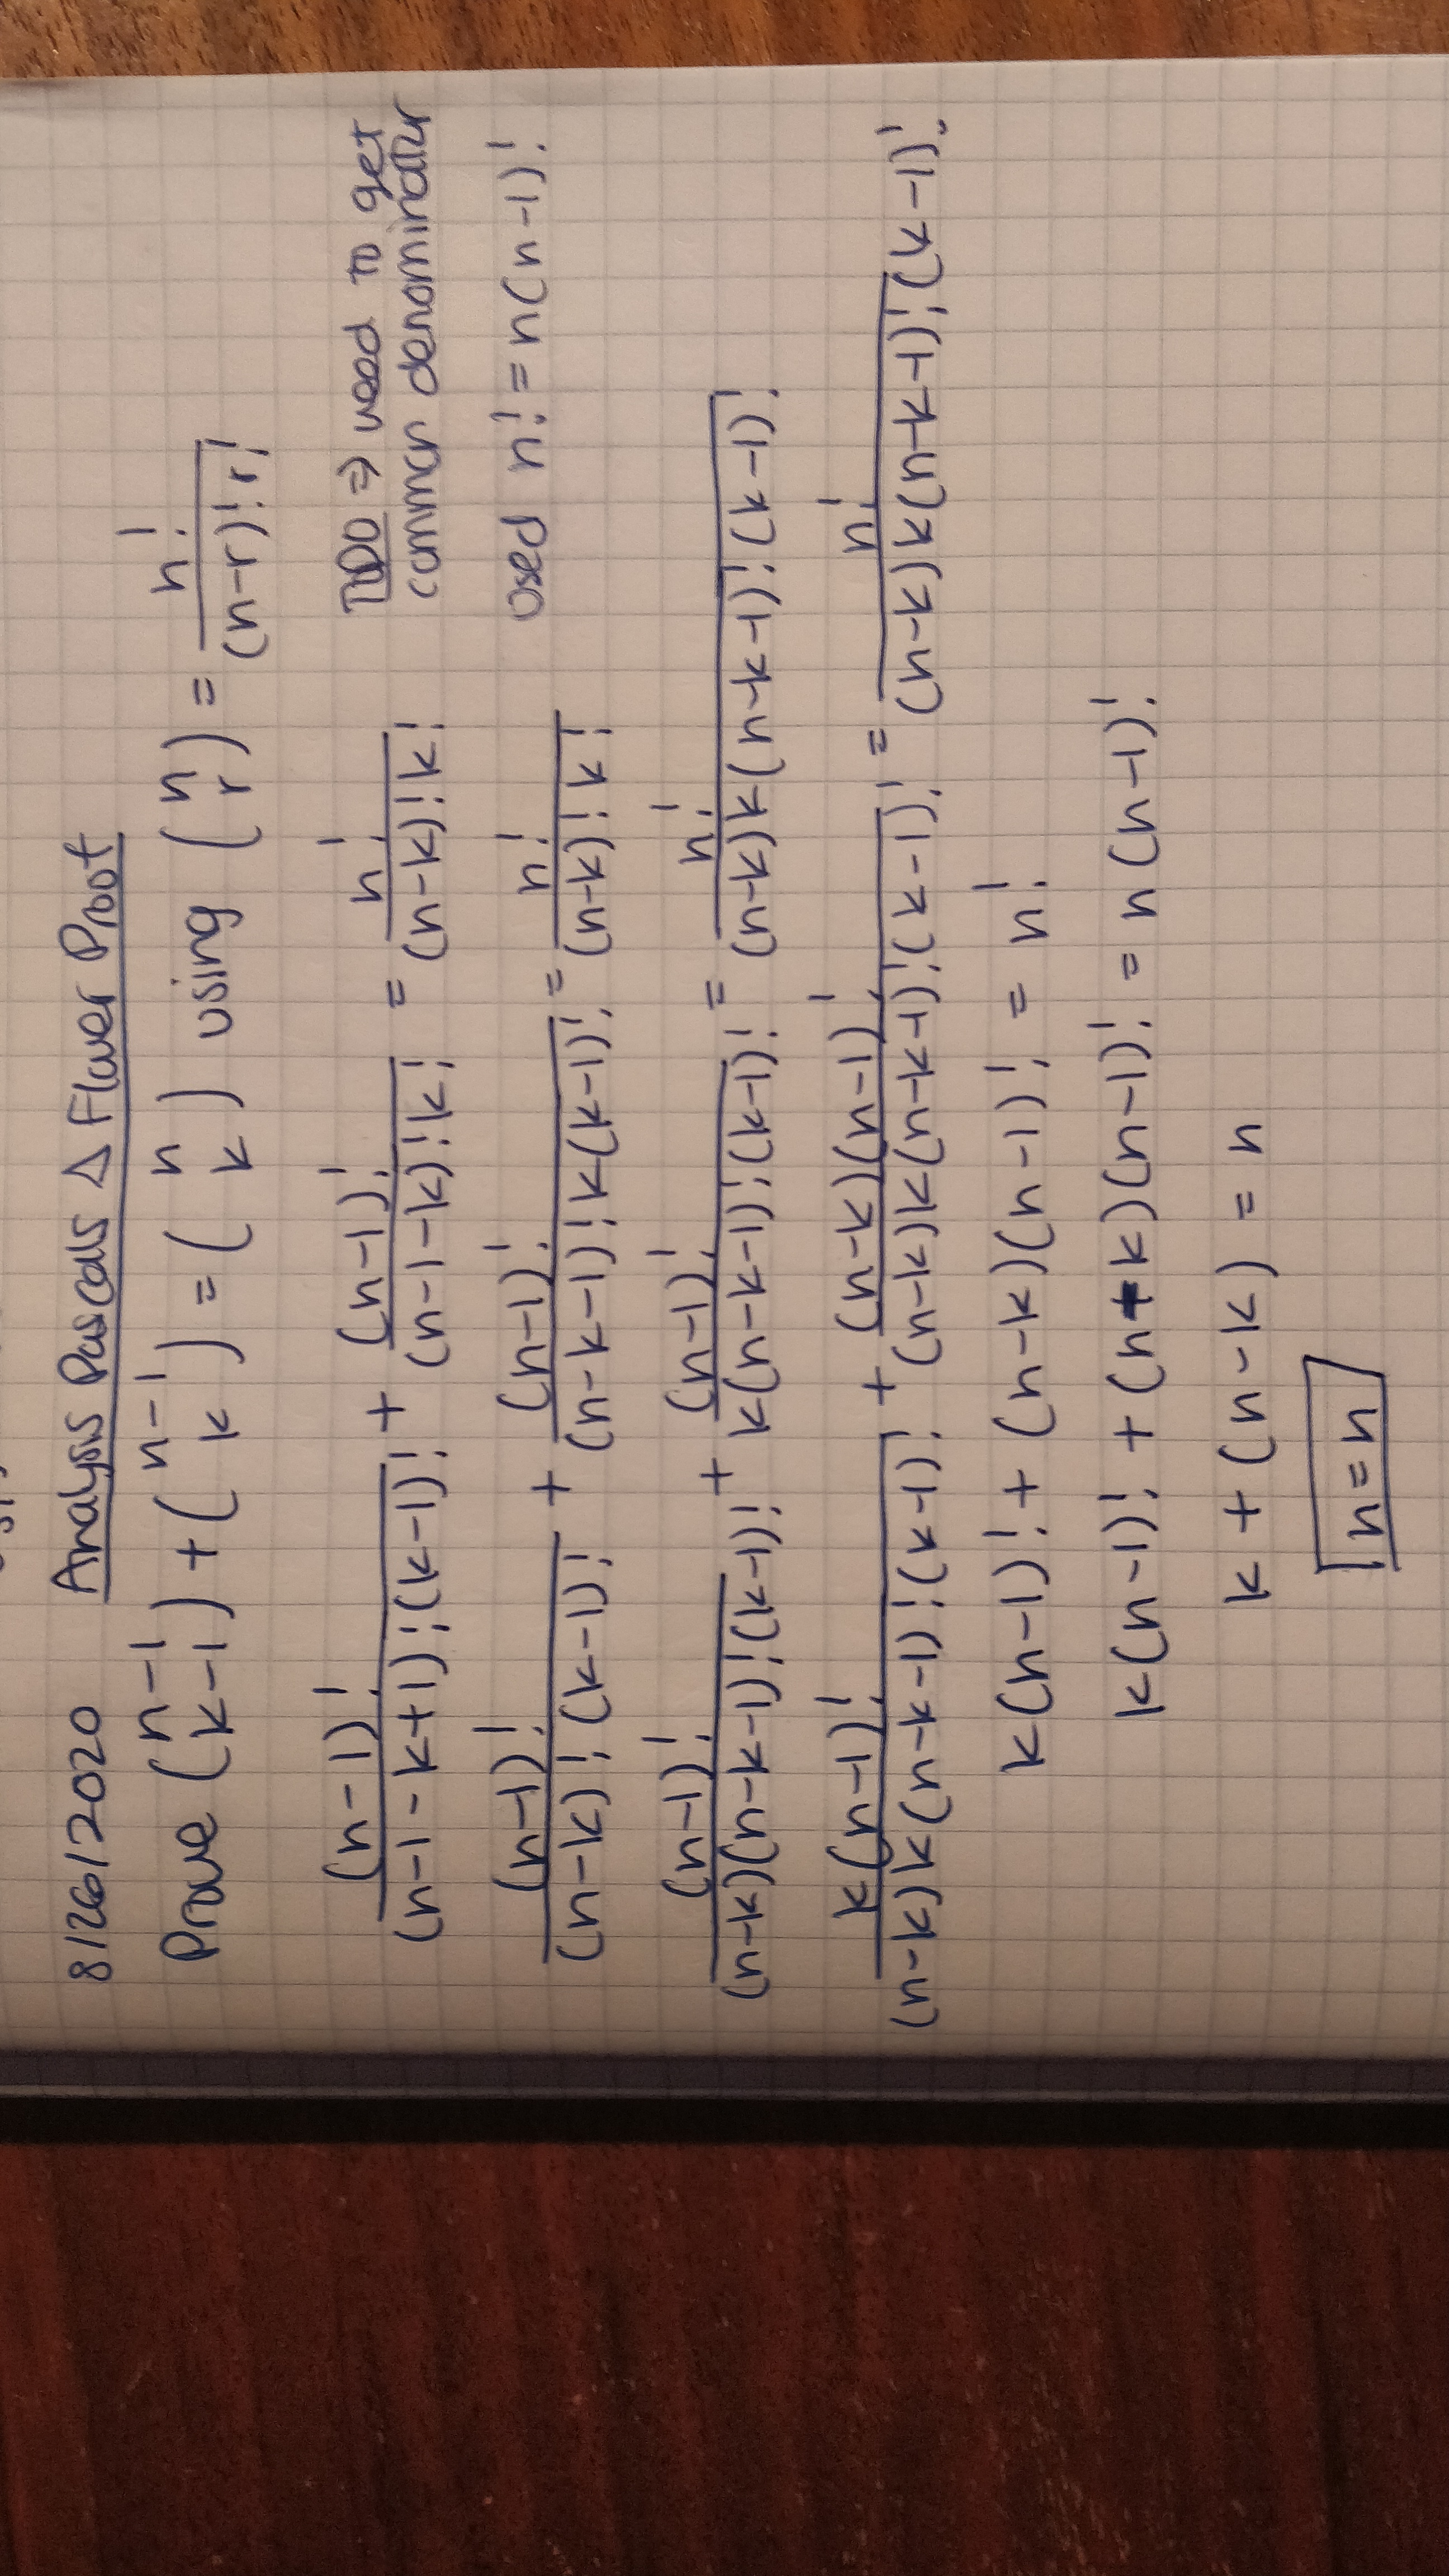 8/26/2020 Analysis Pascals Δ Flower Proof
Prove (n-1 / k-1) + (n-1 / k) = (n / k) using (n / r) = n! / (n-r)! r!
(n-1)! / (n-1-k+1)! (k-1)! + (n-1)! / (n-1-k)! k! = n! / (n-k)! k!
TODO ⇒ need to get
common denominator
(n-1)! / (n-k)! (k-1)! + (n-1)! / (n-k-1)! k(k-1)! = n! / (n-k)! k!
used n! = n(n-1)!
(n-1)! / (n-k)(n-k-1)! (k-1)! + (n-1)! / k(n-k-1)! (k-1)! = n! / (n-k)k(n-k-1)! (k-1)!
k(n-1)! / (n-k)k(n-k-1)! (k-1)! + (n-k)(n-1)! / (n-k)k(n-k-1)! (k-1)! = n! / (n-k)k(n-k-1)! (k-1)!
k(n-1)! + (n-k)(n-1)! = n!
k(n-1)! + (n-k)(n-1)! = n(n-1)!
k + (n-k) = n
n = n